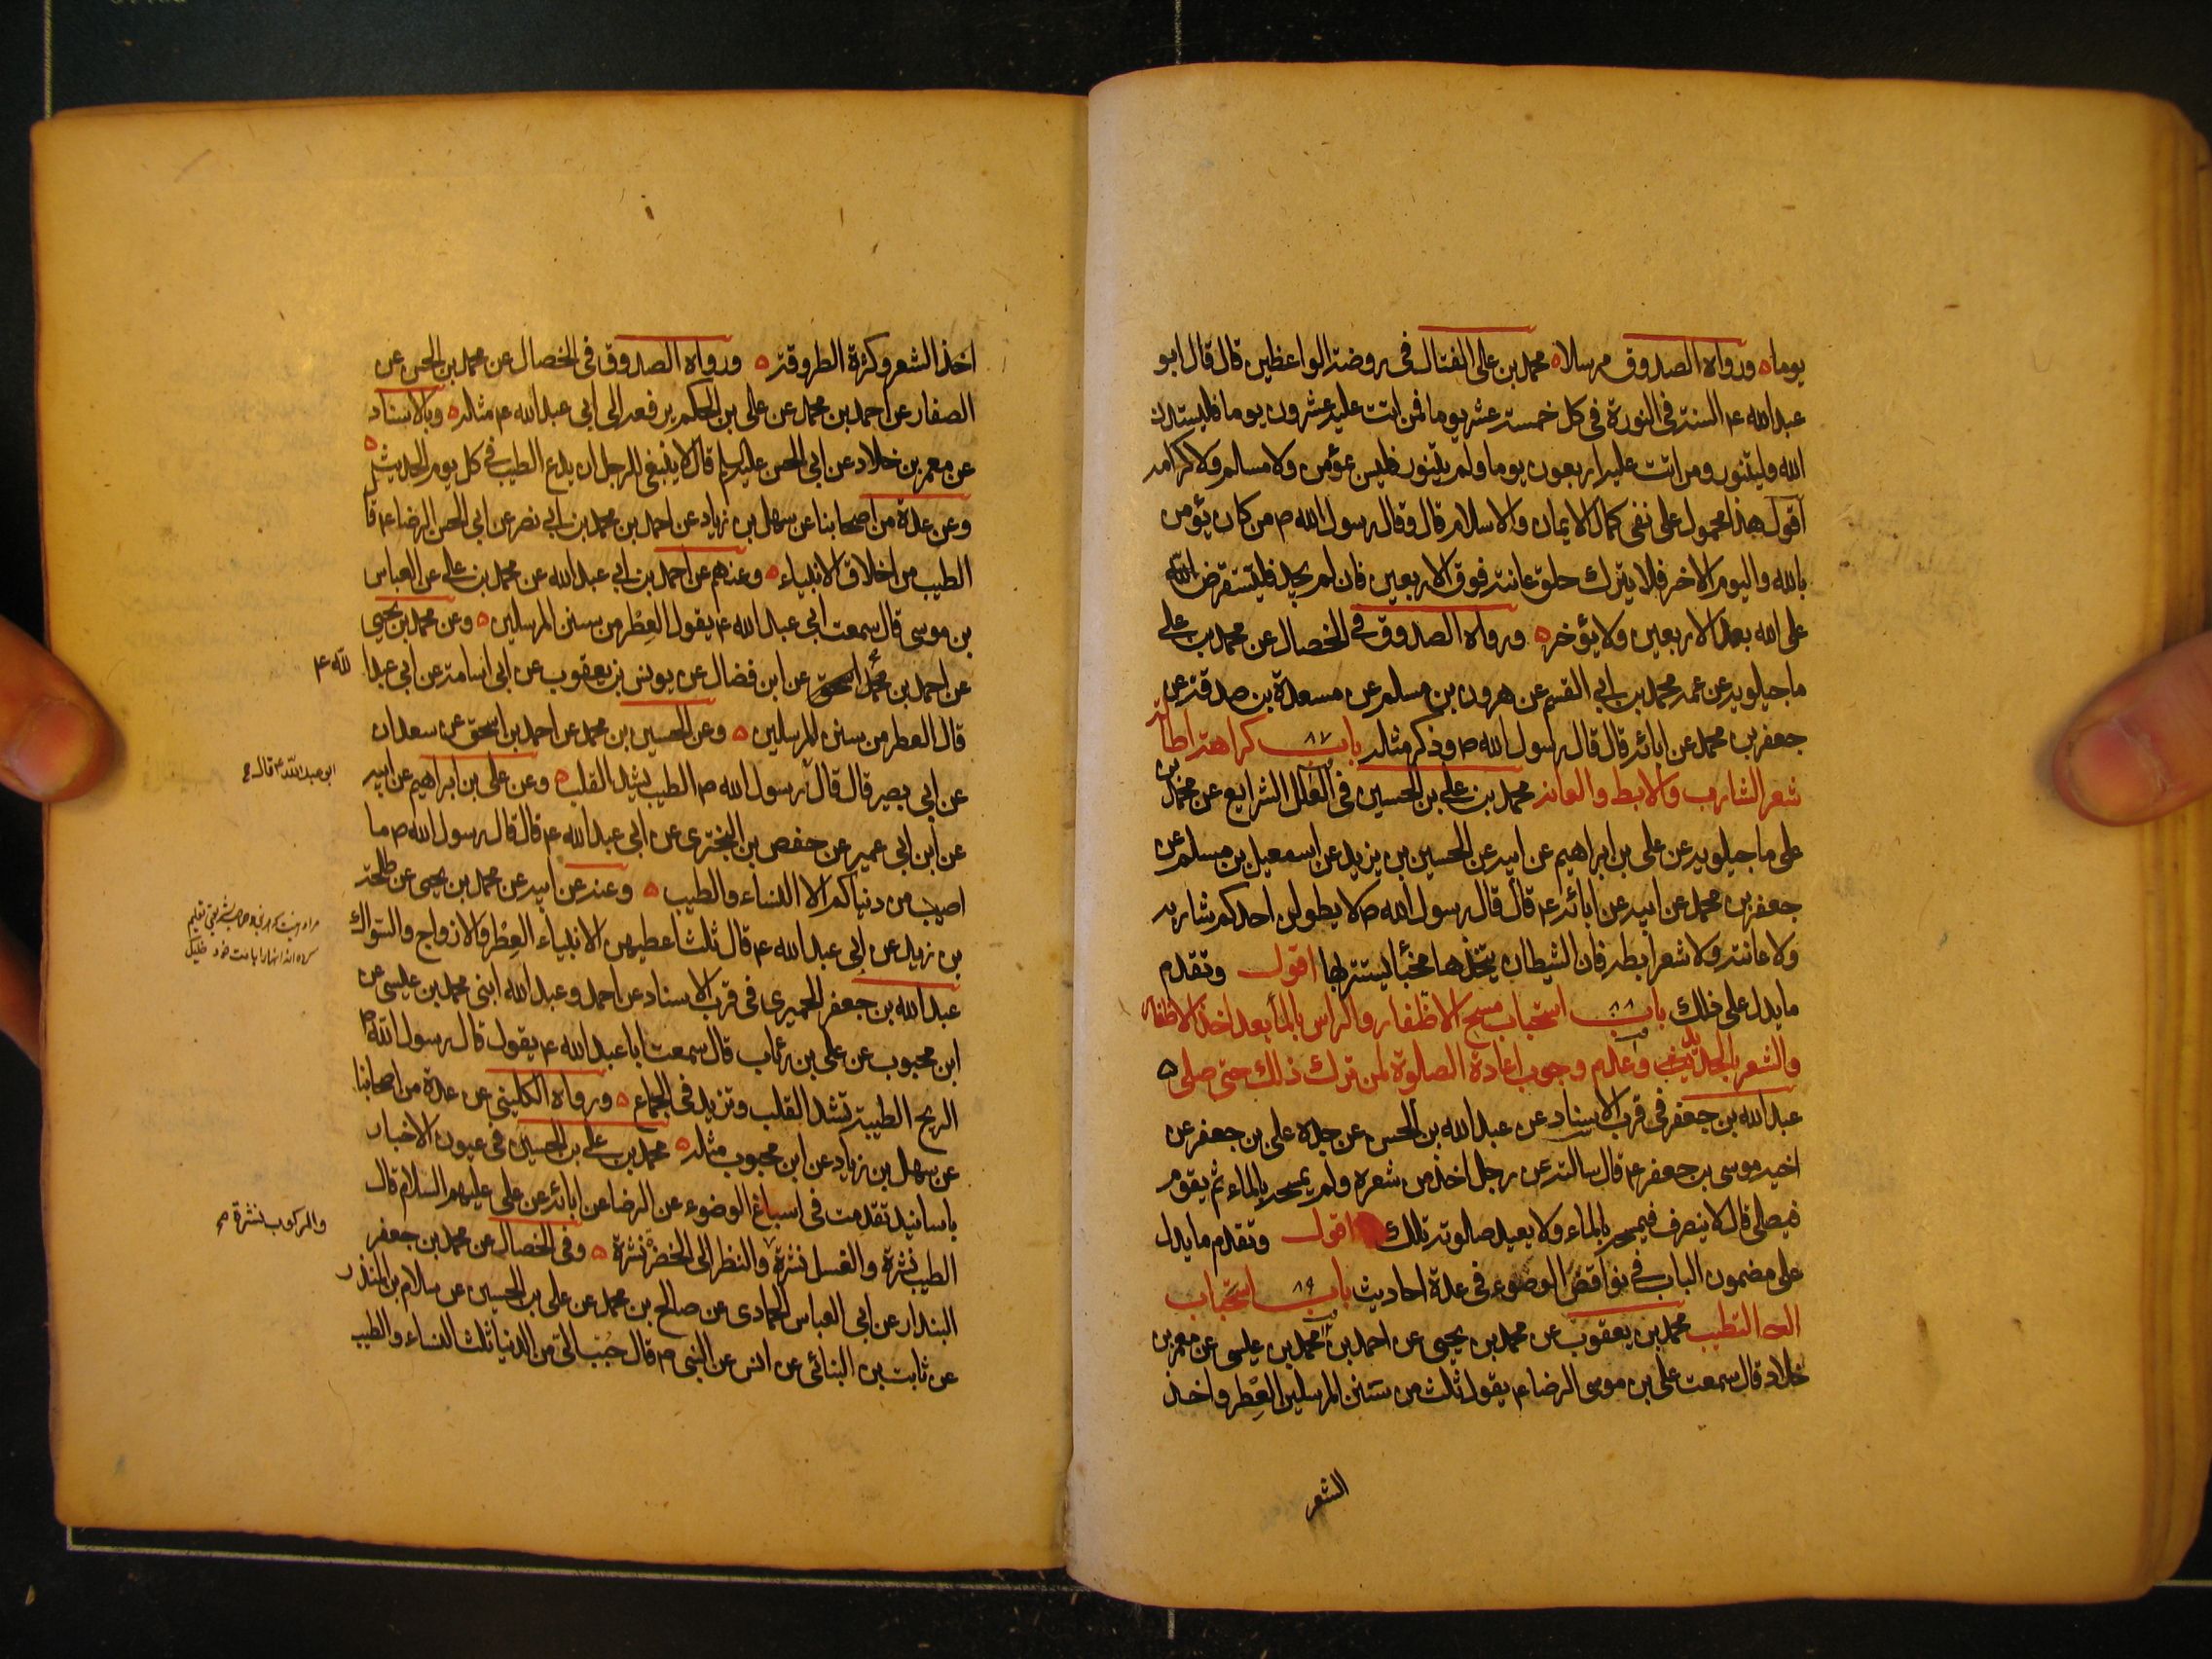 يوما ورواه الصدوق مرسلا محمد بن علي الفتال في روضة الواعظين قال قال ابو
عبد الله ع السنة في النورة في كل خمسة عشر يوما فمن اتت عليه عشرون يوما فليستدن
الله وليتنور ومن اتت عليه اربعون يوما ولم يتنور فليس بمؤمن ولا مسلم ولا كرامه
اقول هذا محمول على نفي كمال الايمان والاسلام قال وقال رسول الله ص من كان يؤمن
بالله واليوم الاخر فلا يترك حلق عانته فوق الاربعين فان لم يجد فليستقرض
على الله بعد الاربعين ولا يؤخر ورواه الصدوق في الخصال عن محمد بن علي
ماجيلويه عن عمه محمد بن ابي القسم عن هرون بن مسلم عن مسعدة بن صدقة عن
جعفر بن محمد عن ابائه قال قال رسول الله ص وذكر مثله باب ٨٧ كراهة اطالة
شعر الشارب والابط والعانه محمد بن علي بن الحسين في العلل الشرايع عن محمد بن
علي ماجيلويه عن علي بن ابراهيم عن ابيه عن الحسين بن يزيد عن اسمعيل بن مسلم عن
جعفر بن محمد عن ابيه عن ابائه ع قال قال رسول الله ص لا يطولن احدكم شاربه
ولا عانته ولا شعر ابطه فان الشيطان يتخذها مخبأ يستتر بها اقول وتقدم
ما يدل على ذلك باب ٨٨ استحباب مسح الاظفار والراس بالماء بعد اخذ الاظفار
والشعر بالحديد وعدم وجوب اعادة الصلوة لمن ترك ذلك حتى صلى
عبد الله بن جعفر في قرب الاسناد عن عبد الله بن الحسن عن جده علي بن جعفر عن
اخيه موسى بن جعفر ع قال سالته عن رجل اخذ من شعره ولم يمسحه بالماء ثم يقوم
فيصلي قال ينصرف فيمسحه بالماء ولا يعيد صلوته تلك اقول وتقدم ما يدل
على مضمون الباب في نواقض الوضوء في عدة احاديث باب ٨٩ استحباب
التطيب محمد بن يعقوب عن محمد بن يحيى عن احمد بن محمد بن عيسى عن معمر بن
خلاد قال سمعت علي بن موسى الرضا ع يقول ثلث من سنن المرسلين العطر واخذ
الشعر
اخذ الشعر وكثرة الطروقة ورواه الصدوق في الخصال عن محمد بن الحسن عن
الصفار عن احمد بن محمد عن علي بن الحكم يرفعه الى ابي عبد الله ع مثله وبالاسناد
عن معمر بن خلاد عن ابي الحسن عليه السلم قال لا ينبغي للرجل ان يدع الطيب في كل يوم الحديث
وعن عدة من اصحابنا عن سهل بن زياد عن احمد بن محمد بن ابي نصر عن ابي الحسن الرضا ع قا
الطيب من اخلاق الانبياء وعنهم عن احمد بن ابي عبد الله عن محمد بن علي عن العباس
بن موسى قال سمعت ابي عبد الله ع يقول العطر من سنن المرسلين وعن محمد بن يحيى
عن احمد بن محمد عن ابن فضال عن يونس بن يعقوب عن ابي اسامة عن ابي عبدا لله ع
قال العطر من سنن المرسلين وعن الحسين بن محمد عن احمد بن اسحق عن سعدان
عن ابي بصير قال قال رسول الله ص الطيب يشد القلب وعن علي بن ابراهيم عن ابيه
ابو عبد الله ع قال
عن ابن ابي عمير عن حفص بن البختري عن ابي عبد الله ع قال قال رسول الله ص ما
اصيب من دنياكم الا النساء والطيب وعنه عن ابيه عن محمد بن يحيى عن طلحة
بن زيد عن ابي عبد الله ع قال ثلث اعطيهن الانبياء العطر والازواج والسواك
عبد الله بن جعفر الحميري في قرب الاسناد عن احمد وعبد الله ابني محمد بن عيسى عن
ابن محبوب عن علي بن رئاب قال سمعت ابا عبد الله ع يقول قال رسول الله ص
الريح الطيبة تشد القلب وتزيد في الجماع ورواه الكليني عن عدة من اصحابنا
عن سهل بن زياد عن ابن محبوب مثله محمد بن علي بن الحسين في عيون الاخبار
باسانيد تقدمت في اسباغ الوضوء عن الرضا عن ابائه عن علي عليهم السلام قال
الطيب نشرة والغسل نشرة والنظر الى الخضرة نشرة وفي الخصال عن محمد بن جعفر
والركوب نشرة صح
البندار عن ابي العباس الحمادي عن صالح بن محمد عن علي بن الحسين عن سلام بن المنذر
عن ثابت بن البنائي عن انس عن النبي ص قال حبب الي من الدنيا ثلث النساء والطيب